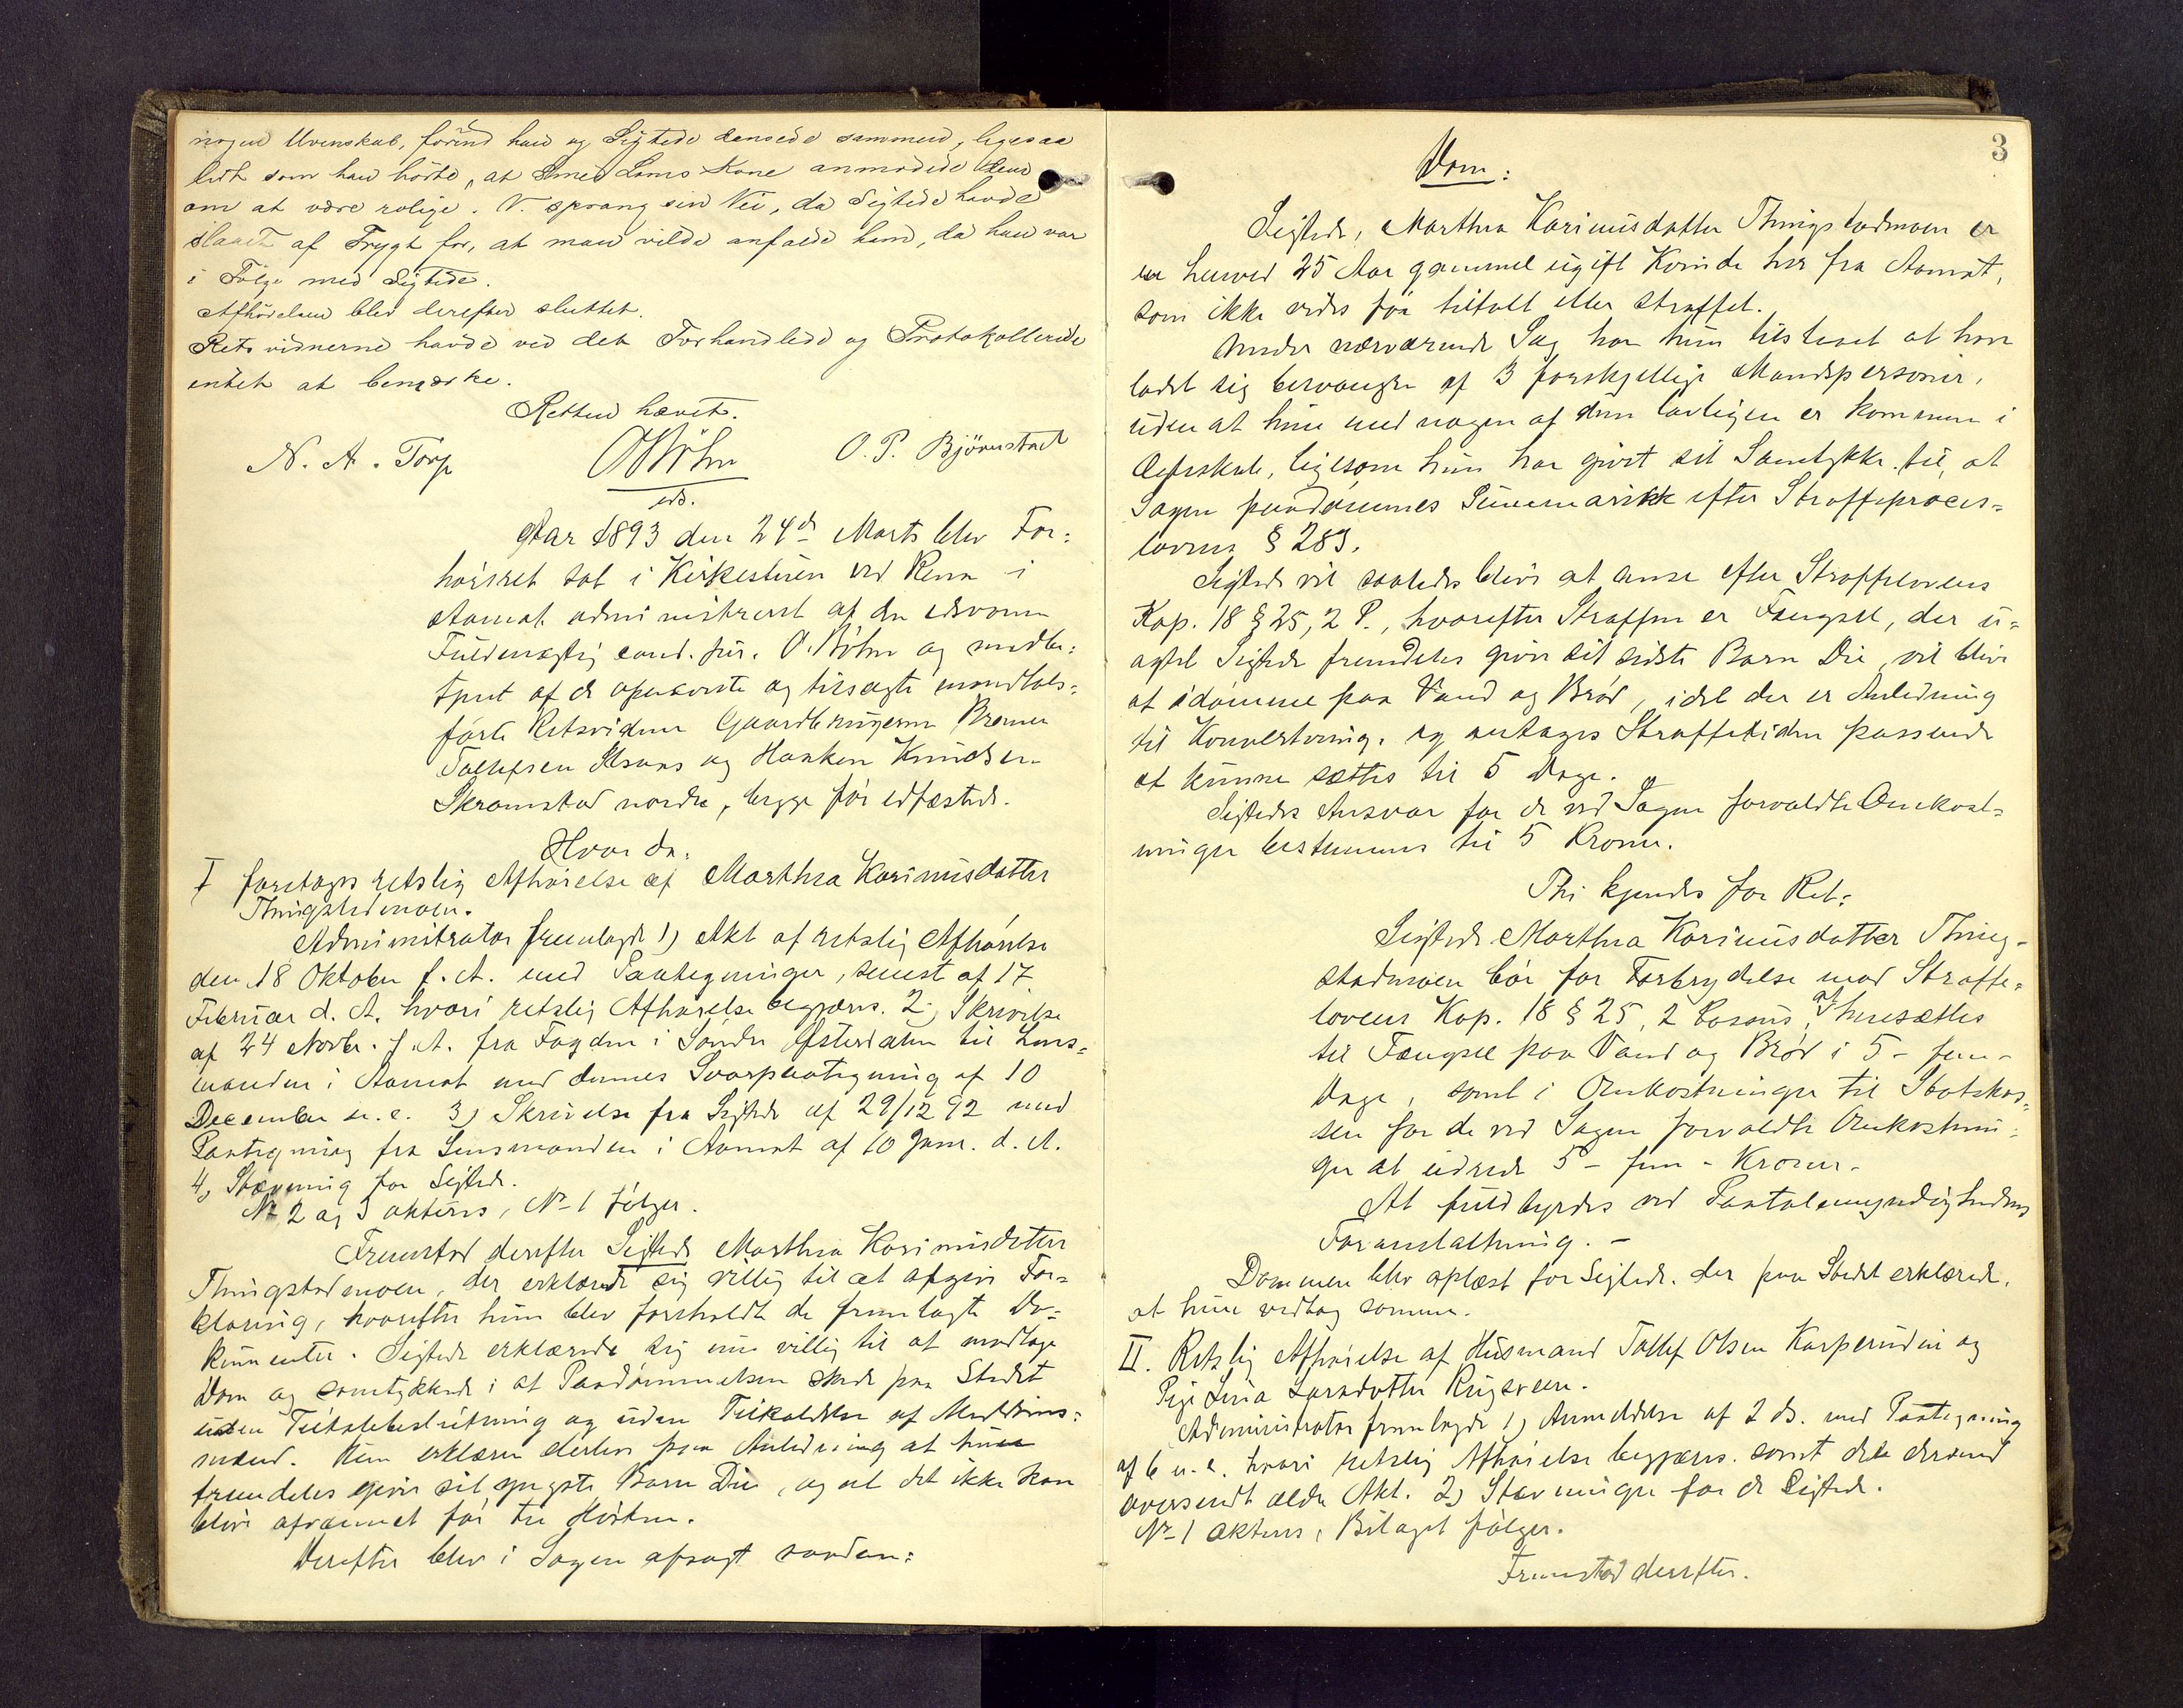 nogen Uvenskab, förend han og Sigtede dansede sammen, ligesaa
lidt som han hörte, at Lars Kone anmodede dem
om at være rolige. V. sprang sin Vei, da Sigtede havde
slaaet af Frygt for, at man vilde anfalde ham, da han var
i Fölge med Sigtede.
Afhörelsen blev derefter sluttet.
Retsvidnerne havde ved det Forhandlede og Protokollerede
intet at bemærke.
Retten hævet.
N. A. Torp
O Böhn
eds.
O. P. Björnstad
Aar 1893 den 24de Marts blev For=
hørsret sat i Kirkestuen ved Rena i
Aamot administreret af den edsvorne
Fuldmægtig cand. jur. O. Böhn og medbe=
tjent af de opnævnte og tilsagte mandtals=
førte Retsvidner Gaardbrugerne Bremer
Tollefsen og Haaken Knudsen
Skramstad nordre, begge før edfæstede.
Hvor da:
I foretoges retslig Afhørelse af Marthea Karinusdatter
Thingstadmoen.
Administrator fremlagde 1) Akt af retslig Afhørelse
den 18 Oktober f. A. med Paategninger, senest af 17
Februar d. A. hvori retslig Afhørelse begjæres. 2) Skrivelse
af 24 Novbr. f. A. fra Fogden i Søndre Østerdalen til Lens=
manden i Aamot med dennes Svarpaategning af 10
December s. A. 3) Skrivelse fra Sigtede af 29/12 92 med
Paategning fra Lensmanden i Aamot af 10 Janr. d. A.
4) Stævning for Sigtede.
No 2 og 3 akteres, No 1 følger.
Fremstod derefter Sigtede Marthea Karinusdatter
Thingstadmoen, der erklærede sig villig til at afgive For=
klaring, hvorefter hun blev foreholdt de fremlagte Do=
kumenter. Sigtede erklærede sig nu villig til at modtage
Dom og samtykkede i at Paadømmelsen skede paa Stedet
uden Tiltalebeslutning og uden Tilkaldelse af Meddoms=
mænd. Hun erklærer derhos paa Anledning at hun
fremdeles giver sit yngste Barn Die, og at det ikke kan
blive afvænnet før til Høsten.
Derefter blev i Sagen afsagt saadan:
3
Dom:
Sigtede, Marthea Karinusdatter Thingstadmoen er
en henved 25 Aar gammel ugift Kvinde her fra Aamot,
som ikke vides før tiltalt eller straffet.
Under nærværende Sag har hun tilstaaet at have
ladet sig besvangre af 3 forskjellige Mandspersoner,
uden at hun med nogen af dem lovligen er kommen i
Ægteskab, ligesom hun har givet sit Samtykke til, at
Sagen paadømmes summarisk efter Straffeproces=
lovens § 283.
Sigtede vil saaledes blive at anse efter Straffelovens
Kap. 18 § 25, 2 P., hvorefter Straffen er Fængsel, der u=
agtet Sigtede fremdeles giver sit sidste Barn Die, vil blive
at idømme paa Vand og Brød, idet der er Anledning
til Konvertering, og antages Straffetiden passende
at kunne sættes til 5 Dage.
Sigtedes Ansvar for de ved Sagen forvoldte Omkost=
ninger bestemmes til 5 Kroner.
Thi kjendes for Ret:
Sigtede Marthea Karinusdatter Thing-
stadmoen bør for Forbrydelse mod Straffe=
lovens Kap. 18 § 25, 2 Passus, at hensættes
til Fængsel paa Vand og Brød i 5 - fem -
Dage, samt i Omkostninger til Statskas=
sen for de ved Sagen forvoldte Omkostnin=
ger at udrede 5 - fem - Kroner.
At fuldbyrdes ved Paatalemyndighedens
Foranstaltning. -
Dommen blev oplæst for Sigtede, der paa Stedet erklærede,
at hun vedtog samme.
II. Retslig Afhørelse af Husmand Tollef Olsen Kasperudeie og
Pige Lina Larsdatter Rugsveen.
Administrator fremlagde 1) Anmeldelse af 2 ds. med Paategning
af 6 s. M. hvori retslig Afhørelse begjæres, samt dels derved
oversendt ældre Akt. 2) Stævninger for de Sigtede.
No 1 akteres, Bilaget følger.
Fremstod derefter.